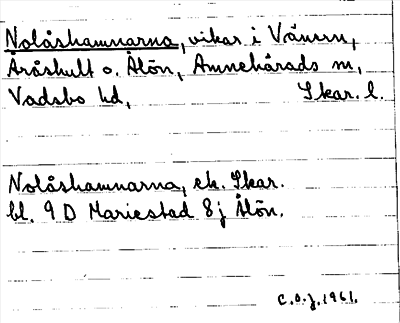 Nolåshamnarna, vikar i Vänern,
Åråshult o. Ålön, Amnehärads sn,
Vadsbo hd, Skar. l.
Nolåshamnarna, ek. Skar.
bl. 9 D Mariestad 8j Ålön.
C.O.J. 1961.